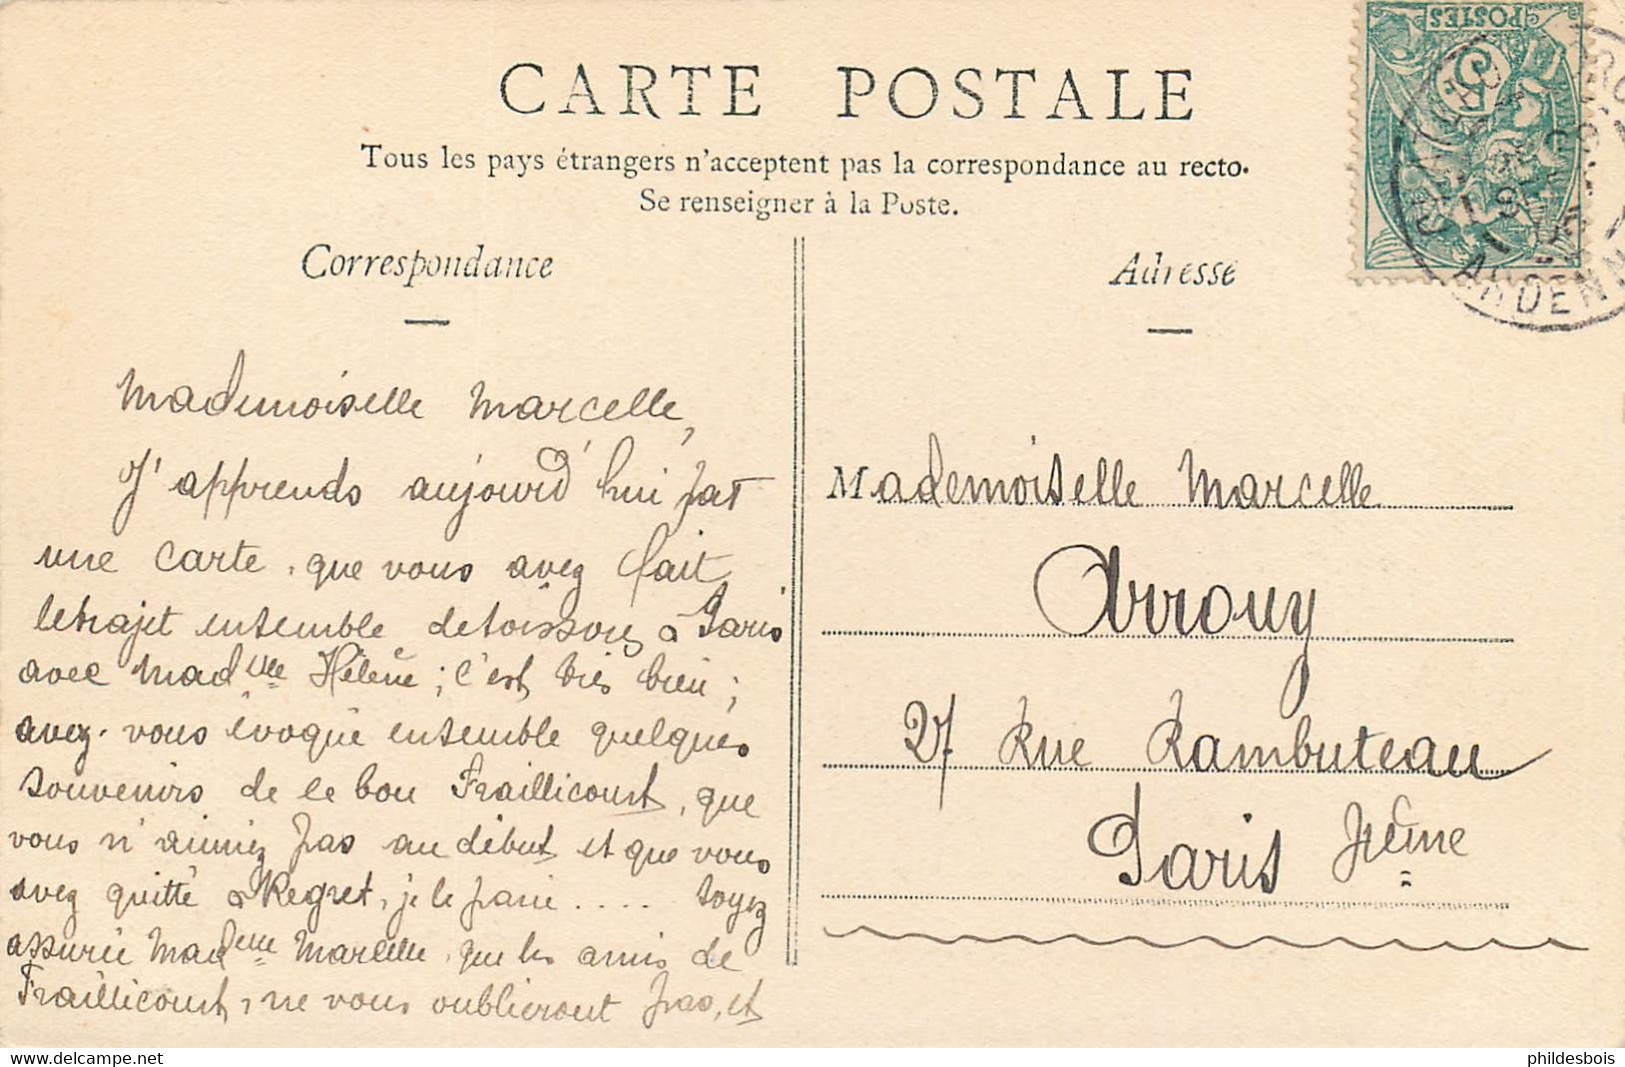 CARTE POSTALE
Tous les pays étrangers n'acceptent pas la correspondance au recto.
Se renseigner à la Poste.
Correspondance
Mademoiselle Marcelle,
J'apprends aujourd'hui par
une carte, que vous avez fait
le trajet ensemble de à Paris
avec Madelle Hélène ; c'est très bien ;
avez-vous évoqué ensemble quelques
souvenirs de ce bon Fraillicourt, que
vous n'aimiez pas au début et que vous
avez quitté à Regret, je le parie .... Soyez
assurée Mademelle Marcelle, que les amis de
Fraillicourt, ne vous oublieront pas, et
Adresse
Mademoiselle Marcelle
Arrouy
27 Rue Rambuteau
Paris
POSTES
5
ARDENN
www.delcampe.net
phildesbois